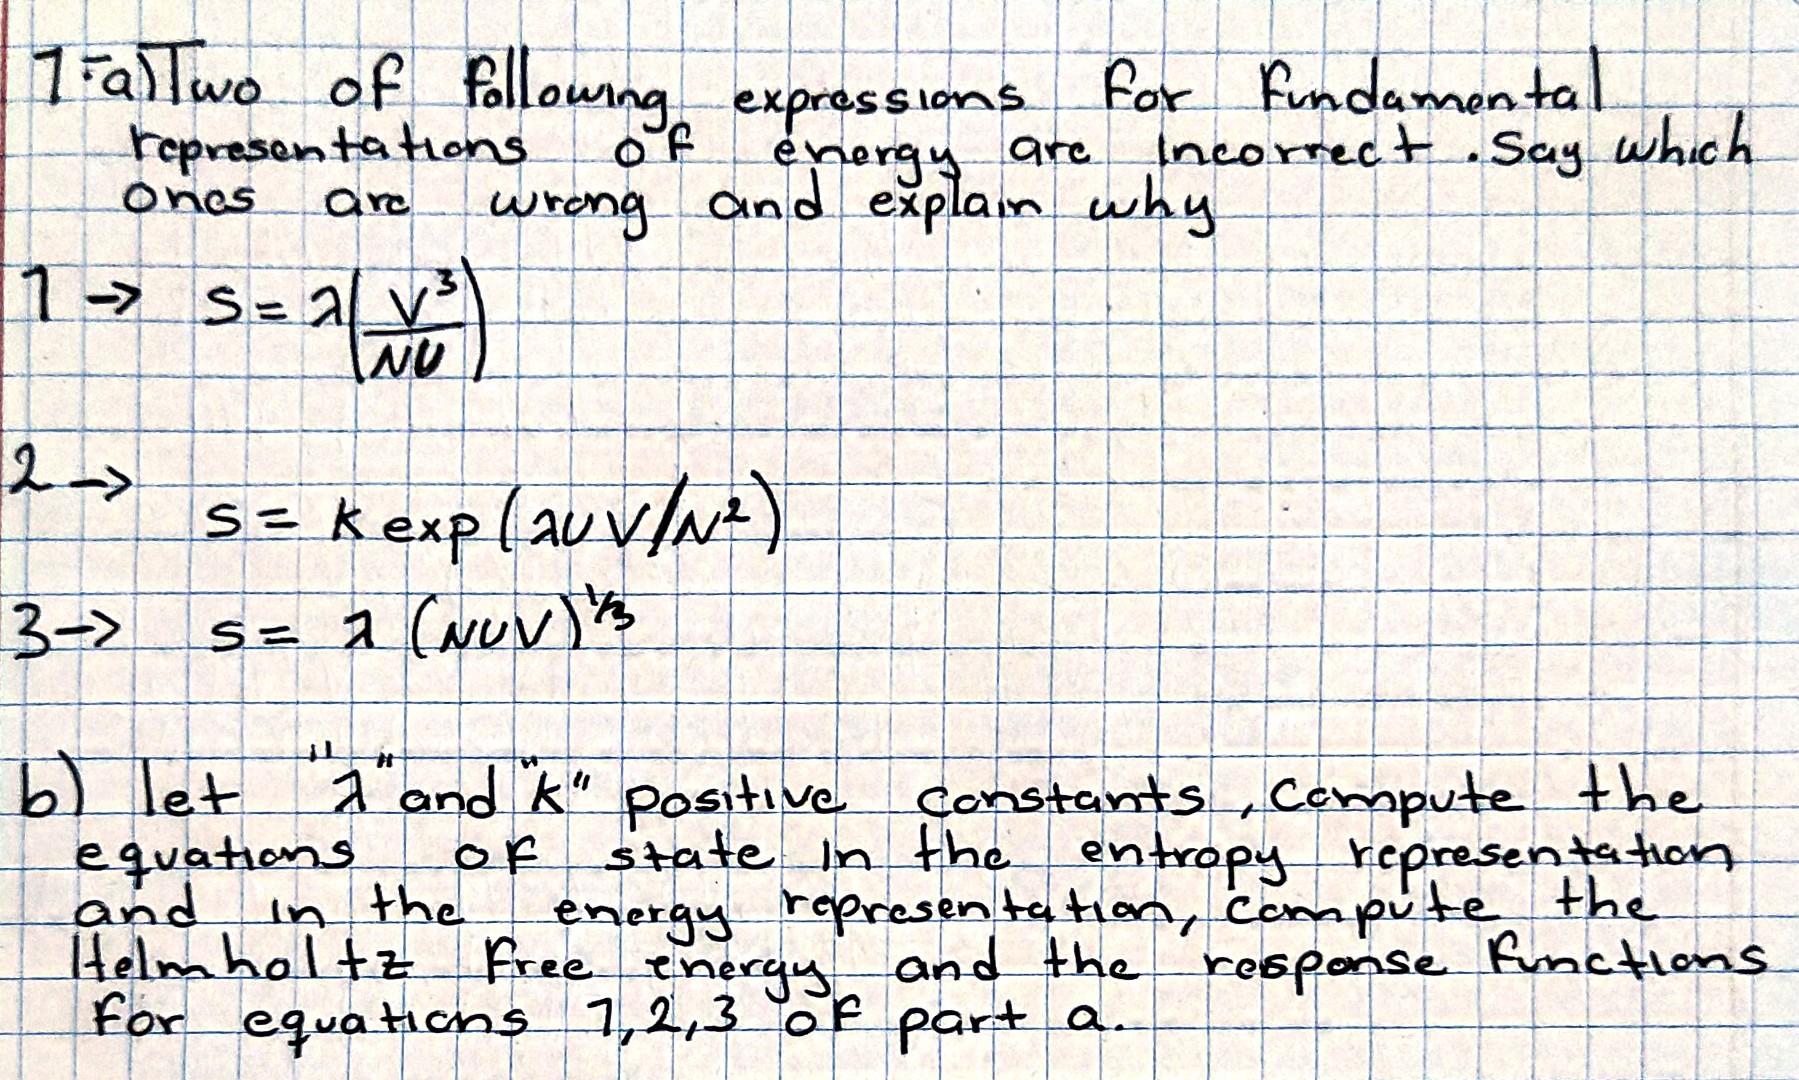 1-a) Two of following expressions for fundamental
representations of energy are incorrect. Say which
ones are wrong and explain why
1 → S = λ(V³/NU)
2 →
S = k exp(λUV/N²)
3 → S = λ (NUV)^1/3
b) let "λ" and "k" positive constants, compute the
equations of state in the entropy representation
and in the energy representation, compute the
Helmholtz free energy and the response functions
for equations 1,2,3 of part a.